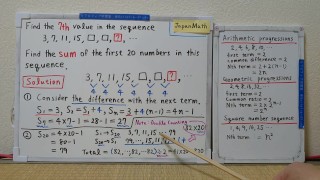 Find the 7th value in the sequence
JapanMath
3, 7, 11, 15, □, □, ?, ...
Find the sum of the first 20 numbers in this
sequence.
Solution
3, 7, 11, 15, □, □, ?, ...
4 4 4 4 4 4
① Consider the difference with the next term.
S₁ = 3, Sₙ = 3 + 4(n-1) = 4n-1
S₇ = 4×7-1 = 28-1 = 27
② S₂₀ = 4×20-1
= 80-1
= 79
S₁ → S₂₀
S₂₀ → S₁
Total =
Arithmetic progressions
2, 4, 6, 8, 10,
first term = 2
common difference = 2
Nth term =
Geometric progressions
first term = 2
Common ratio = 2
Nth term =
Square number sequence
1, 4, 9, 16, 25
Nth term = n²